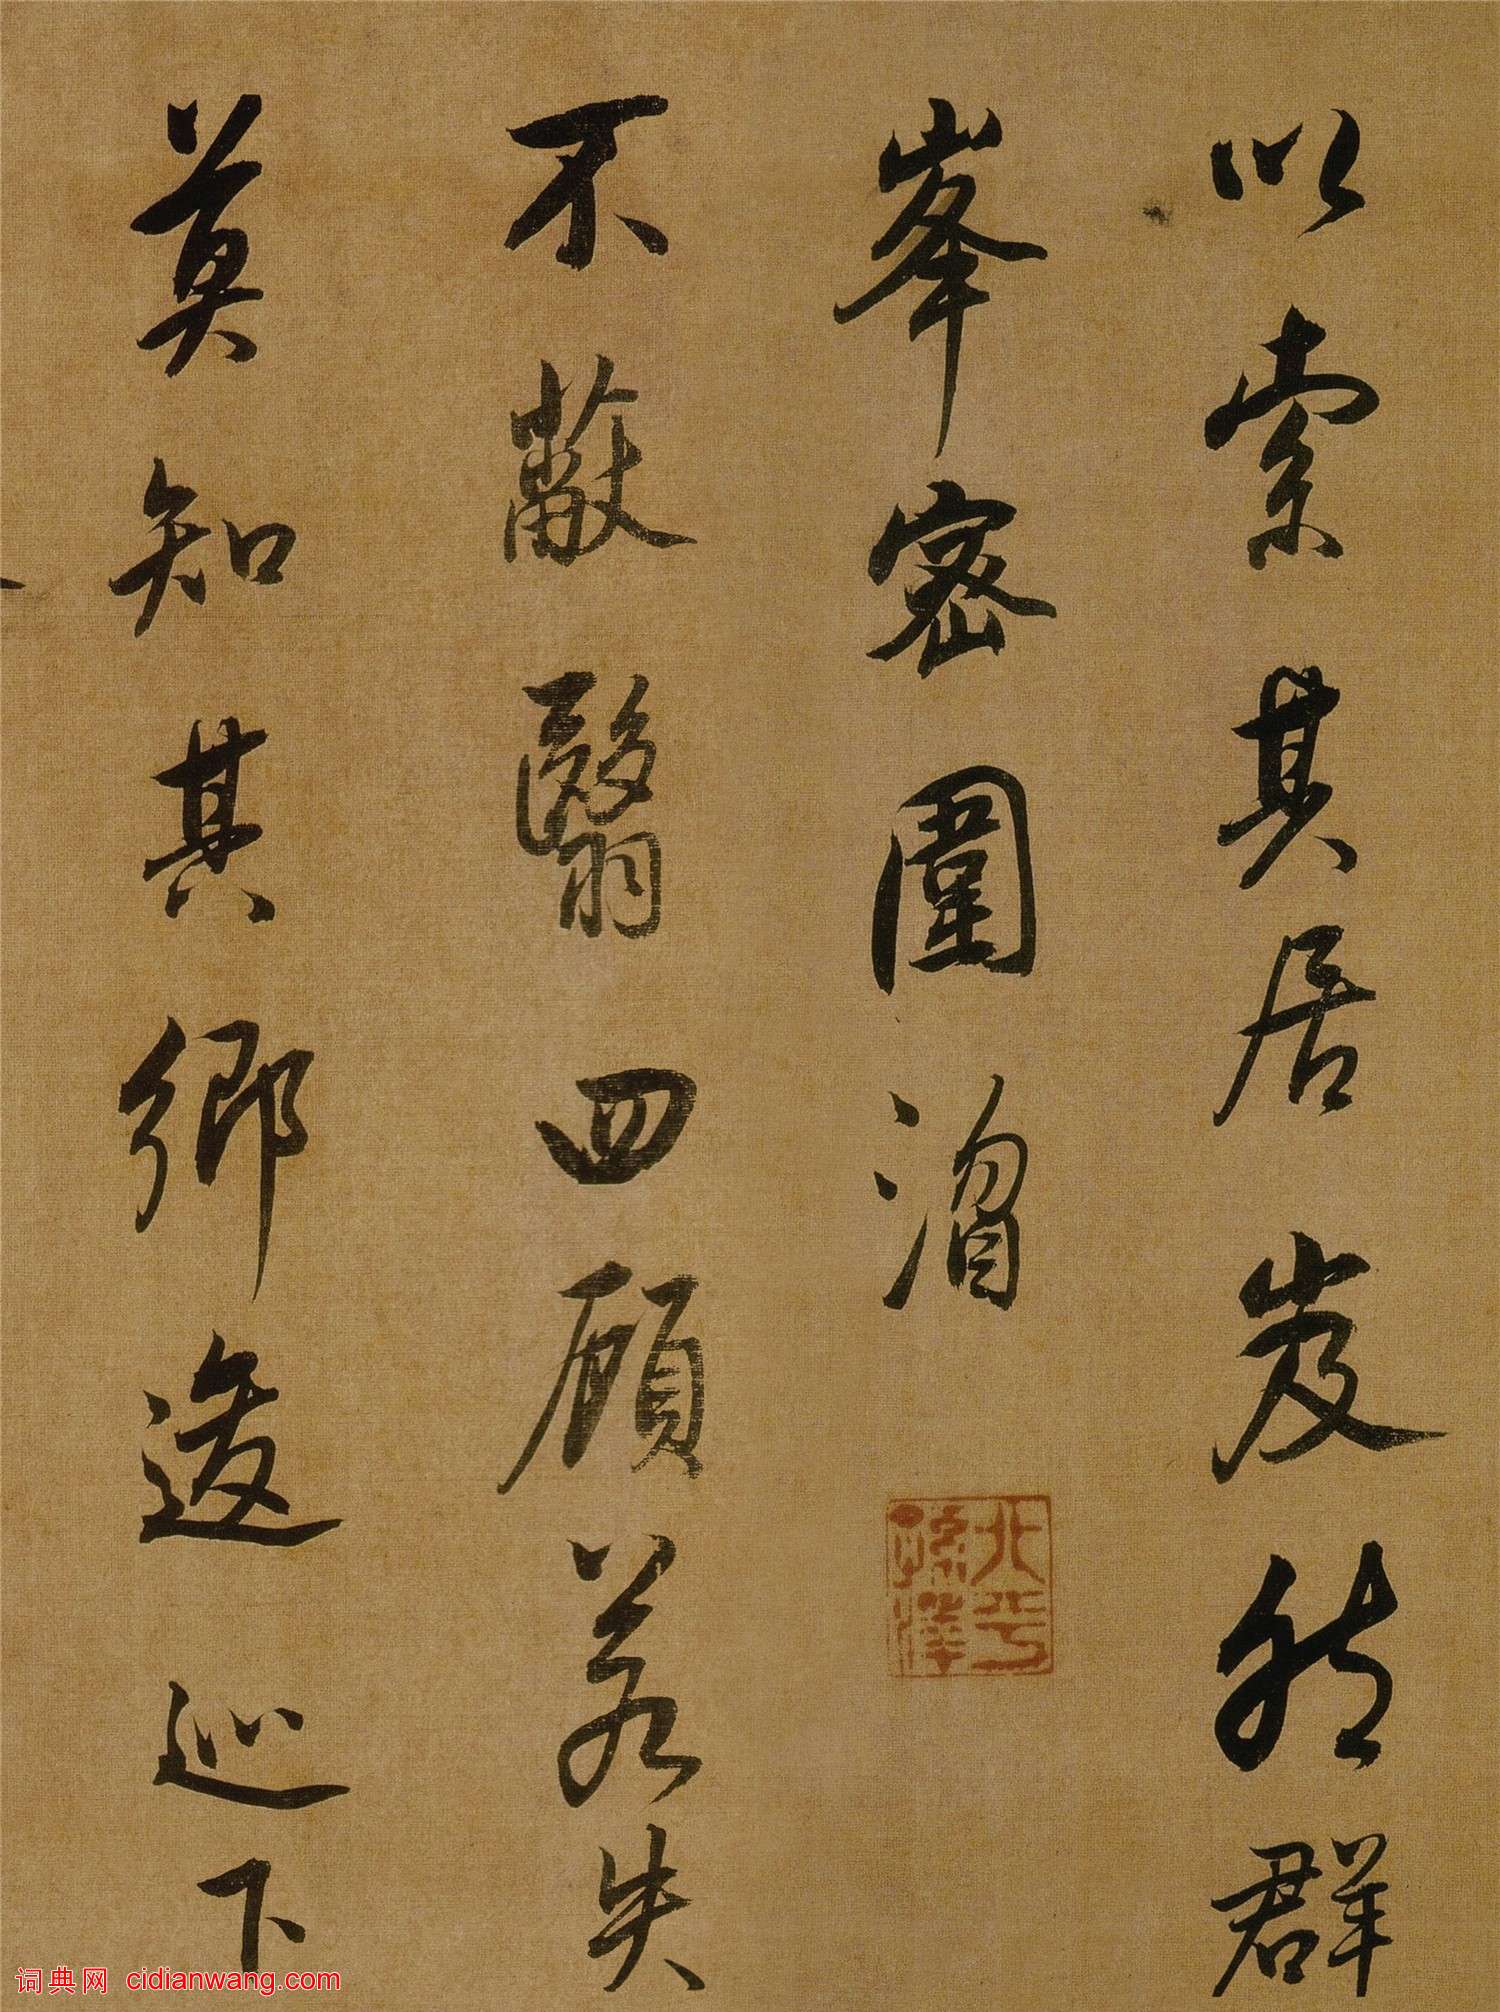 以索其居岌然群
峯密圍
不蔽翳四顧若失
莫知其鄉逡巡下
北平
孫澤
词典网 cidianwang.com